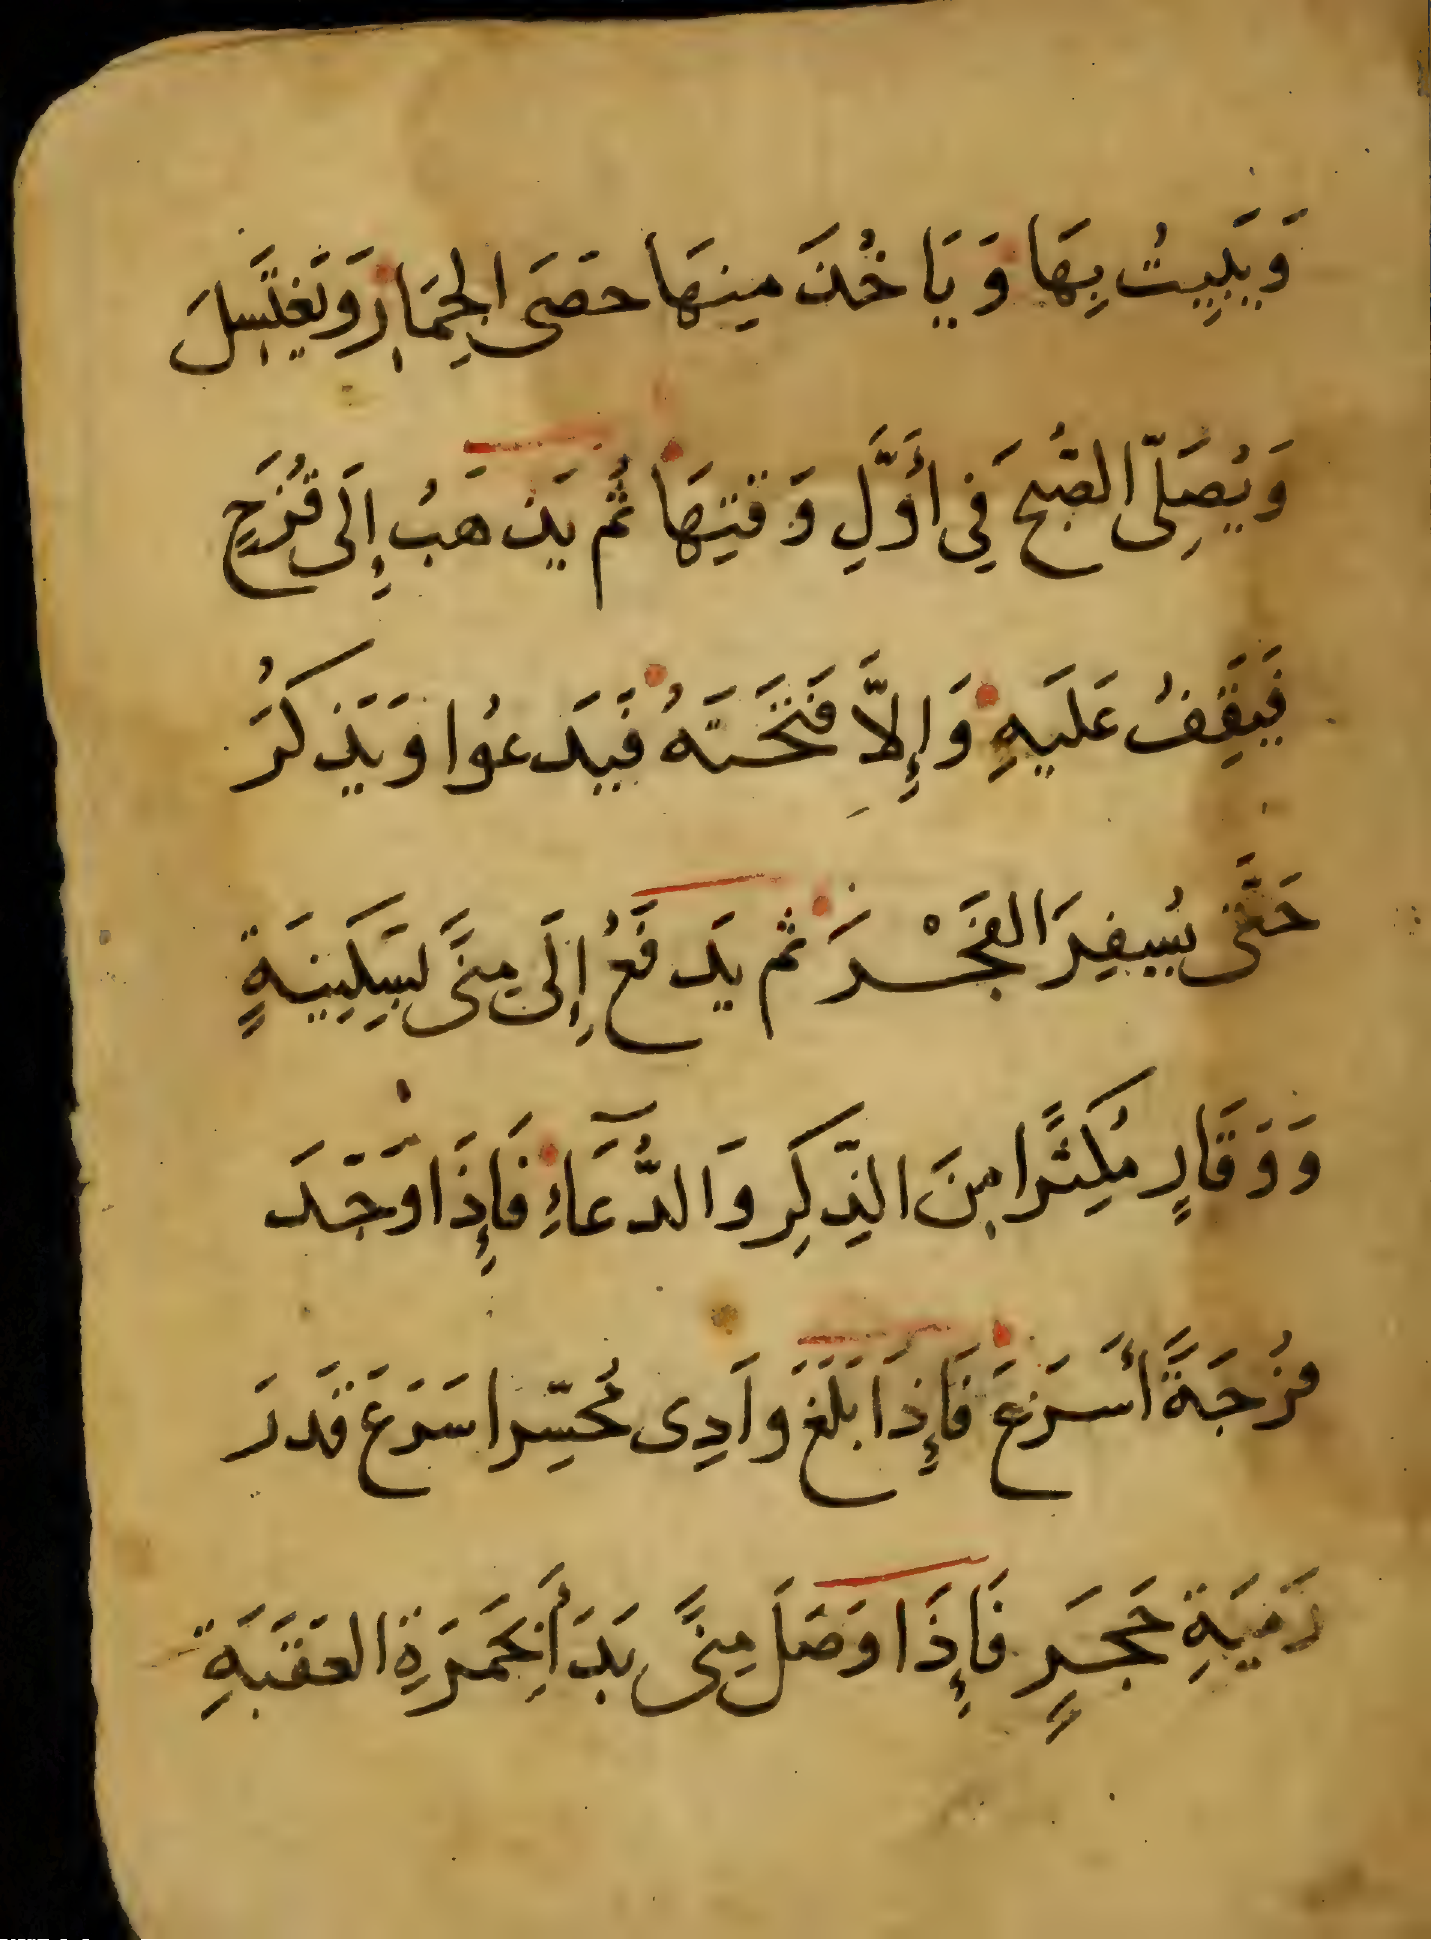 وَيَبِيتُ بِهَا وَيَاخُذَ مِنهَا حَصَى الجِمَارِ وَيَغتَسِلَ
وَيُصَلِّى الصُّبحَ فِى أَوَّلِ وَقتِهَا ثُم يَذهَبُ إِلَى قُزَحٍ
فَيَقِفُ عَلَيهِ وَإِلاَّ فَتَحتَهُ فَيَدعُوا وَيَذكُرَ
حَتَّى يُسفِرَ الفَجْرَ ثم يَدفَعُ إِلَى مِنًى بسَكِينَةٍ
وَوَقَارٍ مُكِثرًا مِنَ الذِّكِر وَالدُّعَآءِ فَإِذَا وَجَدَ
فُرجَةً أَسَرَعَ فَإِذَا بَلَغَ وَادِى مُحَسِّر اسَرَعَ قَدرَ
رَميَةِ حَجَرٍ فَإِذَا وَصَلَ مِنًى بَدَأَ بِجَمَرَةِ العَقَبَةِ